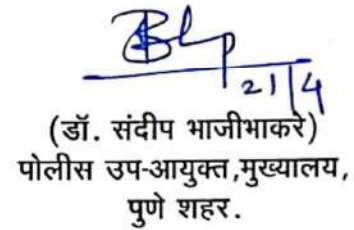 21/4
(डॉ. संदीप भाजीभाकरे)
पोलीस उप-आयुक्त,मुख्यालय,
पुणे शहर.